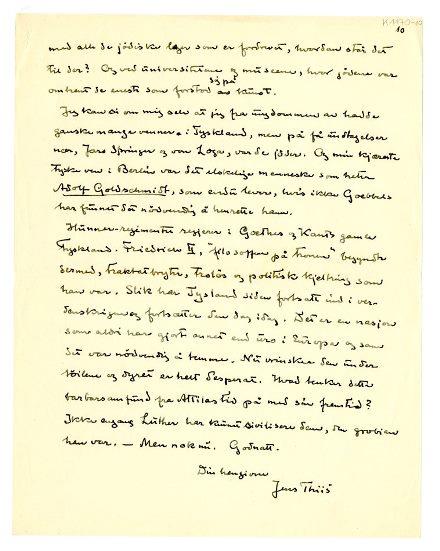 K 1170-10
10
med alle de jødiske læger som er fordrevet, hvordan står det
til der? Og ved universiteterne og museene, hvor jødene var
omtrent de eneste som forstod sig på kunst.
Jeg kan si om mig selv at jeg fra ungdommen av hadde
ganske mange venner i Tyskland, men på få undtagelser
nær, Jaro Springer og von Loga, var de jøder. Og min kjæreste
tyske ven i Berlin var det elskelige menneske som heter
Adolf Goldschmidt, som endu lever, hvis ikke Goebbels
har funnet det nödvendig å henrette ham.
Hunner-regimentet regjerer i Goethes og Kants gamle
Tyskland. Friedrich II, "filosoffen på tronen" begyndte
dermed, traktatbryter, troløs og politisk kjeltring som
han var. Slik har Tyskland siden fortsatt ind i ver-
denskrigen og fortsætter den dag idag. Det er en nasjon
som aldri har gjort annet end uro i Europa og som
det var nödvendig å temme. Nu vrinsker den under
tøilene og dyret er helt desperat. Hvad tenker dette
barbarsamfund fra Attilas tid på med sin fremtid?
Ikke engang Luther har kunnet sivilisere dem, den grobian
han var. — Men nok nu. Godnatt.
Din hengivne
Jens Thiis